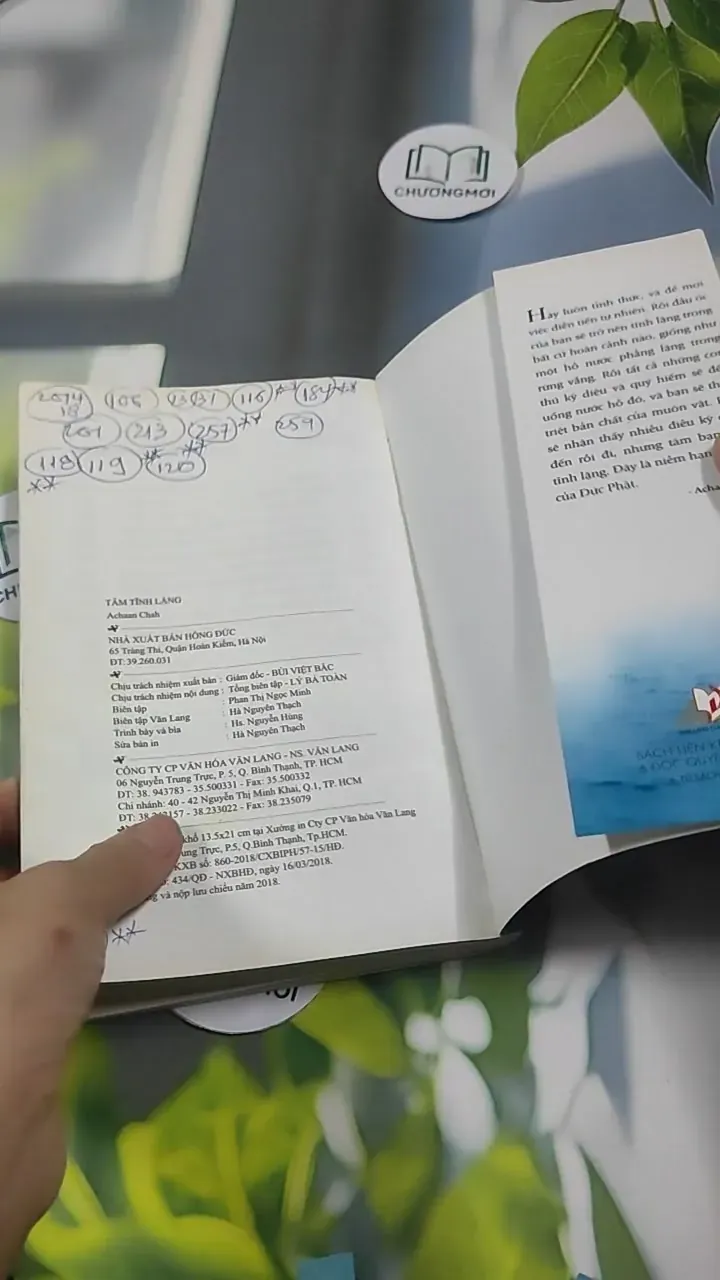 CHƯƠNGMỚI
Hãy luôn tỉnh thức, và để mọi
việc diễn tiến tự nhiên. Rồi đầu óc
của bạn sẽ trở nên tĩnh lặng trong
bất cứ hoàn cảnh nào, giống như
một hồ nước phẳng lặng trong
rừng vắng. Rồi tất cả những con
thú kỳ diệu và quý hiếm sẽ đế
uống nước hồ đó, và bạn sẽ th
triệt bản chất của muôn vật.
sẽ nhận thấy nhiều điều kỳ
đến rồi đi, nhưng tâm bạn
tĩnh lặng. Đây là niềm hạn
của Đức Phật.
- Acha
106 116 ** 184 **
201 213 257 ** 259
118 119 ** 120 **
**
TÂM TĨNH LẶNG
Achaan Chah
NHÀ XUẤT BẢN HỒNG ĐỨC
65 Tràng Thi, Quận Hoàn Kiếm, Hà Nội
ĐT: 39.260.031
Chịu trách nhiệm xuất bản : Giám đốc - BÙI VIỆT BẮC
Chịu trách nhiệm nội dung : Tổng biên tập - LÝ BÁ TOÀN
Biên tập : Phan Thị Ngọc Minh
Biên tập Văn Lang : Hà Nguyên Thạch
Trình bày và bìa : Hs. Nguyễn Hùng
Sửa bản in : Hà Nguyên Thạch
CÔNG TY CP VĂN HÓA VĂN LANG - NS. VĂN LANG
06 Nguyễn Trung Trực, P. 5, Q. Bình Thạnh, TP. HCM
ĐT: 38. 943783 - 35.500331 - Fax: 35.500332
Chi nhánh: 40 - 42 Nguyễn Thị Minh Khai, Q.1, TP. HCM
ĐT: 38. 157 - 38.233022 - Fax: 38.235079
khổ 13.5x21 cm tại Xưởng in Cty CP Văn hóa Văn Lang
ung Trực, P.5, Q.Bình Thạnh, Tp.HCM.
KXB số: 860-2018/CXBIPH/57-15/HĐ.
: 434/QĐ - NXBHĐ, ngày 16/03/2018.
g và nộp lưu chiểu năm 2018.
**